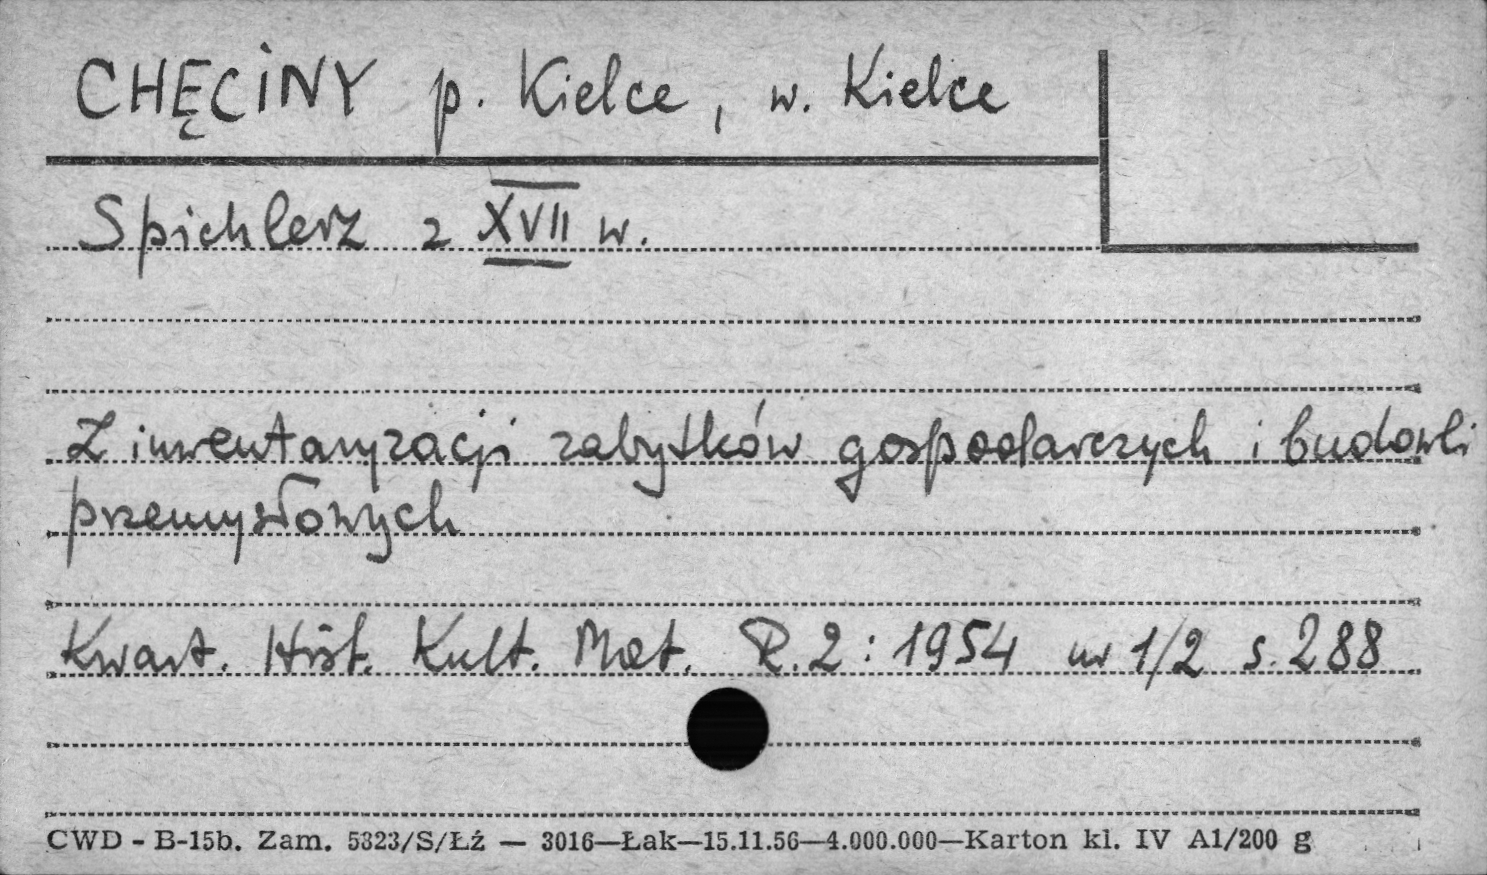 CHĘCINY p. Kielce, w. Kielce
Spichlerz z XVII w.
Z inwentaryzacji zabytków gospodarczych i budowli
przemysłowych
Kwart. Hist. Kult. Mat. R.2: 1954 nr 1/2 s. 288
CWD - B-15b. Zam. 5323/S/Łź — 3016—Łak—15.11.56—4.000.000—Karton kl. IV A1/200 g